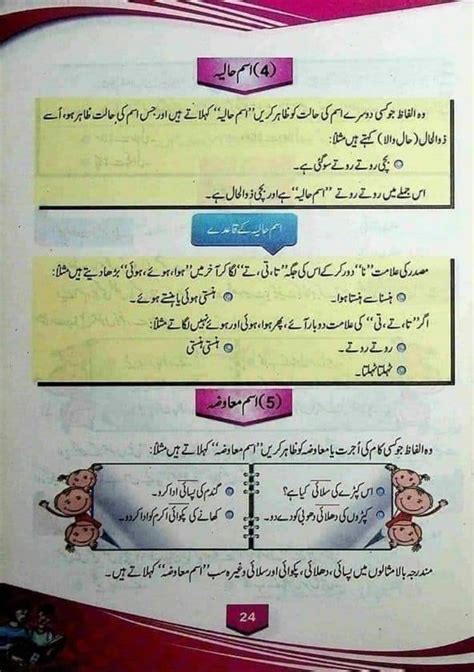 (4) اسم حالیہ
وہ الفاظ جو کسی دوسرے اسم کی حالت کو ظاہر کریں "اسم حالیہ" کہلاتے ہیں اور جس اسم کی حالت ظاہر ہو، اُسے
ذوالحال (حال والا) کہتے ہیں مثلاً:
بچی روتے روتے سو گئی ہے۔
اس جملے میں روتے روتے "اسم حالیہ" ہے اور بچی ذوالحال ہے۔
اسم حالیہ کے قاعدے
مصدر کی علامت "نا" دور کر کے اس کی جگہ "تا، تی، تے" لگا کر آخر میں "ہوا، ہوئے، ہوئی" بڑھا دیتے ہیں مثلاً:
ہنسنا سے ہنستا ہوا۔ ہنستی ہوئی یا ہنستے ہوئے۔
اگر "تا، تے، تی" کی علامت دوبار آئے، پھر ہوا، ہوئی اور ہوئے نہیں لگاتے مثلاً:
روتے روتے۔ ہنستی ہنستی
ٹہلتا ٹہلتا۔
(5) اسم معاوضہ
وہ الفاظ جو کسی کام کی اُجرت یا معاوضہ کو ظاہر کریں "اسم معاوضہ" کہلاتے ہیں مثلاً:
اس کپڑے کی سلائی کیا ہے؟ گندم کی پسائی ادا کرو۔
کپڑوں کی دھلائی دھوبی کو دے دو۔ کھانے کی پکوائی اکرم کو ادا کر دو۔
مندرجہ بالا مثالوں میں پسائی، دھلائی، پکوائی اور سلائی وغیرہ سب "اسم معاوضہ" کہلاتے ہیں۔
24